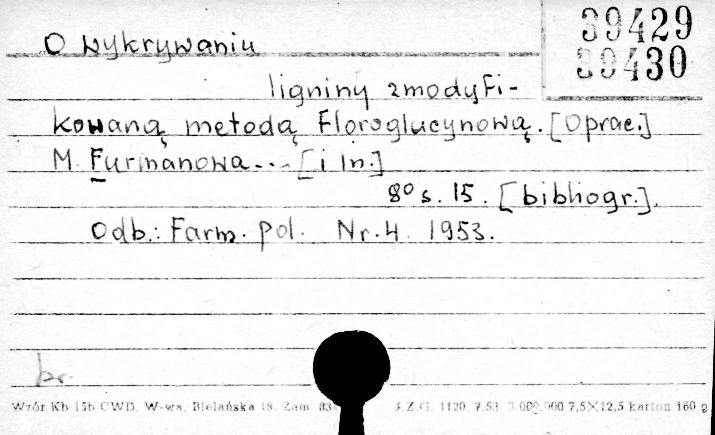 39429
39430
O wykrywaniu
ligniny zmodyfi-
kowaną metodą Floroglucynową. [Oprac.]
M. Furmanowa... [i in.]
8° s. 15. [bibliogr.].
Odb.: Farm. Pol. Nr. 4. 1953.
br.
Wzór Kb-15b CWD, W-wa, Bielańska 18. Zam. J.Z.G. 1120. 7.53 3.000.000 7,5×12,5 karton 160 g.